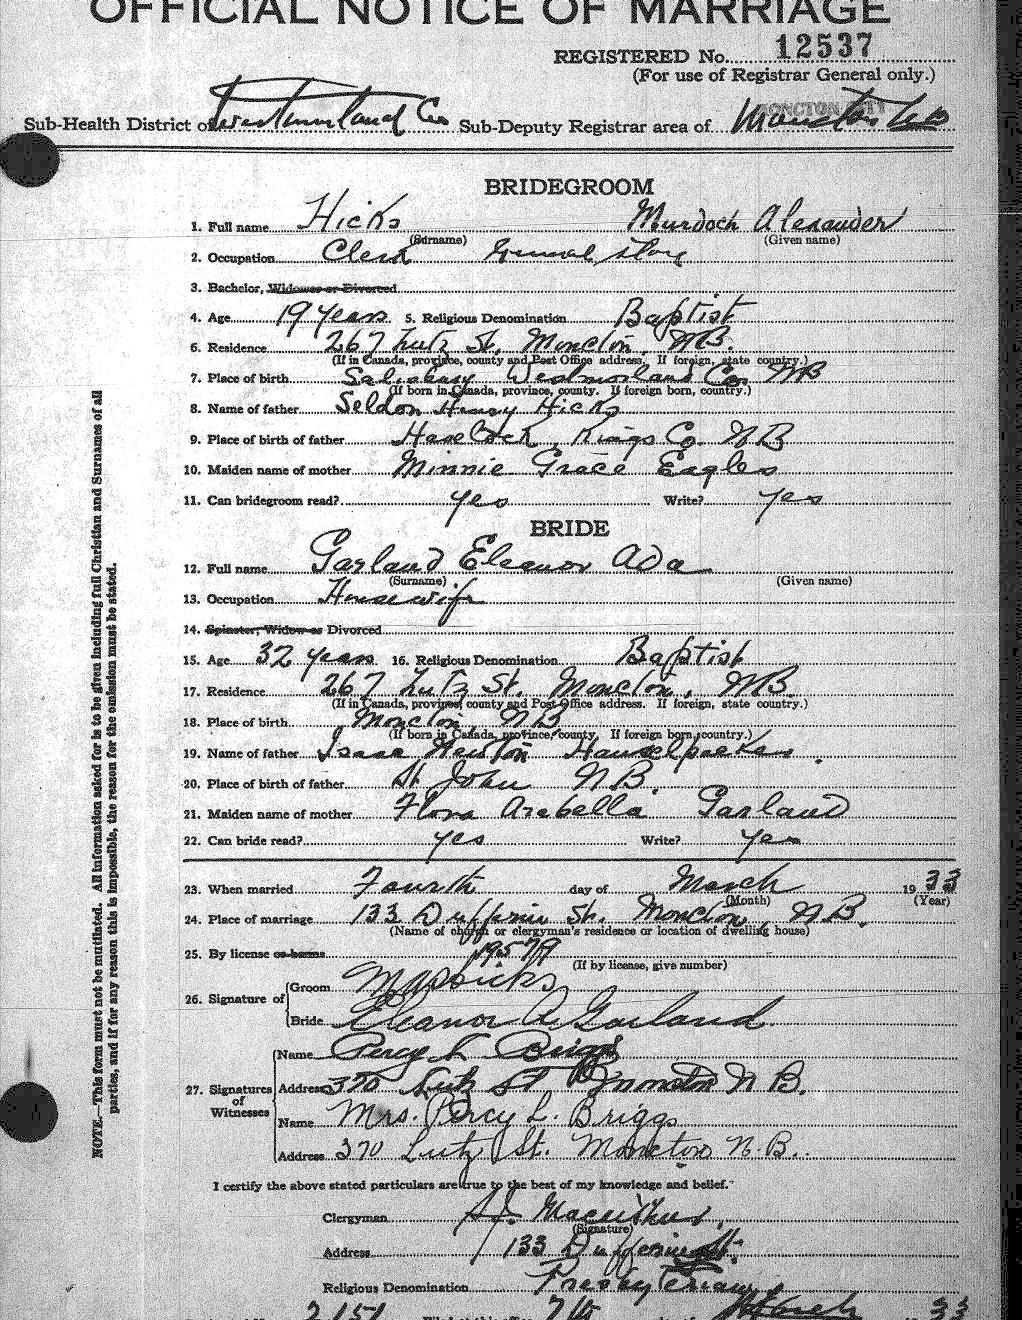 OFFICIAL NOTICE OF MARRIAGE
REGISTERED No. 12537
(For use of Registrar General only.)
MONCTON CITY
Sub-Health District of Westmorland Co Sub-Deputy Registrar area of Moncton NB
BRIDEGROOM
1. Full name Hicks Murdoch Alexander
(Surname) (Given name)
2. Occupation Clerk General Store
3. Bachelor, Widower or Divorced
4. Age 19 years 5. Religious Denomination Baptist
6. Residence 267 Lutz St, Moncton, NB.
(If in Canada, province, county and Post Office address. If foreign, state country.)
7. Place of birth Salisbury Westmorland Co. NB
(If born in Canada, province, county. If foreign born, country.)
8. Name of father Seldon Henry Hicks
9. Place of birth of father Havelock, Kings Co. NB
10. Maiden name of mother Minnie Grace Eagles
11. Can bridegroom read? yes Write? yes
BRIDE
12. Full name Garland Eleanor Ada
(Surname) (Given name)
13. Occupation Housewife
14. Spinster, Widow or Divorced
15. Age 32 years 16. Religious Denomination Baptist
17. Residence 267 Lutz St. Moncton, NB.
(If in Canada, province, county and Post Office address. If foreign, state country.)
18. Place of birth Moncton, NB
(If born in Canada, province, county. If foreign born, country.)
19. Name of father Isaac Newton
20. Place of birth of father St. John NB.
21. Maiden name of mother Flora Arabella Garland
22. Can bride read? yes Write? yes
23. When married Fourth day of March 1933
(Month) (Year)
24. Place of marriage 133 Dufferin St. Moncton, NB.
(Name of church or clergyman's residence or location of dwelling house)
25. By license or banns 19579
(If by license, give number)
26. Signature of Groom M A Hicks
Bride Eleanor A Garland
27. Signatures of Witnesses
Name Percy L Briggs
Address 370 Lutz St Moncton N B.
Name Mrs. Percy L. Briggs
Address 370 Lutz St. Moncton N.B.
I certify the above stated particulars are true to the best of my knowledge and belief.
Clergyman
(Signature)
Address 133 Dufferin St.
Religious Denomination Presbyterian
2151 7th March 33
NOTE.—This form must not be mutilated. All information asked for is to be given including full Christian and Surnames of all
parties, and if for any reason this is impossible, the reason for the omission must be stated.